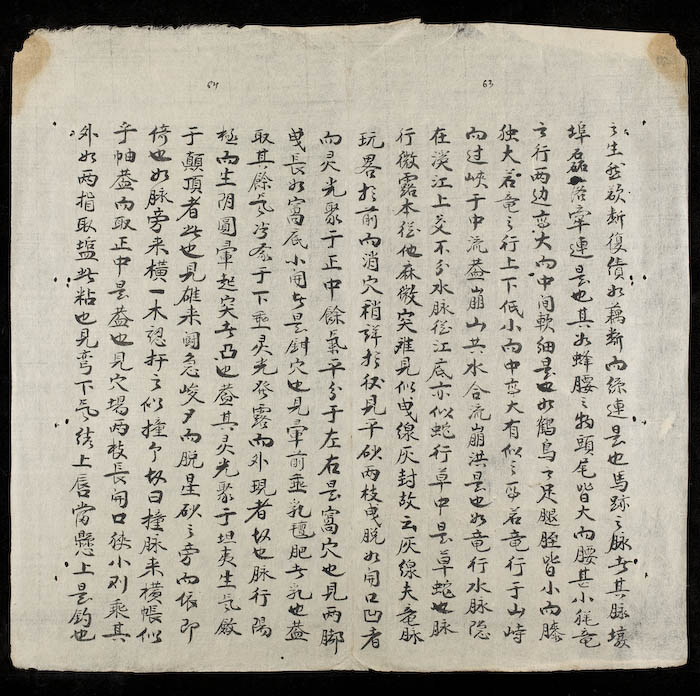 63
之生然欲断復續如藕断而絲連是也馬跡之脉者其脉壕
埠磊落牵連是也其如蜂腰之物頭尾皆大而腰甚小竜
之行两边峦大而中间軟细是也如鶴鳥之足腿脛皆小而膝
独大若竜之行上下低小而中峦大有似之耳若竜行于山峙
而过峡于中流蓋崩山共水合流崩洪是也如竜行水脉隐
在溪江上交不分水脉從江底亦似蛇行草中是草蛇也脉
行微露本從他麻微突难見似曳線灰封故云灰線夫竜脉
玩畧於前而消穴稍詳於後見平砂两枝曳脱如開口凹者
64
而灵光聚于正中餘氣平分于左右是窩穴也見两脚
曳長如窩底小開者是鉗穴也見暈前垂乳氊肥者乳也蓋
取其餘氣于下垂灵光發露而外現者故也脉行陽
極而生阴圓暈起突者凸也蓋其灵光聚于坦夷生气
于顛頂者此也見雄来闘急峻夕而脱星砂之旁而依即
倚也如脉旁来橫一木認扞之似撞乍故曰撞脉来橫帳似
乎帕蓋而取正中是蓋也見穴場两枝長開口狭小则乘其
外如两指取塩此粘也見弯下气结上唇嘗懸上是釣也